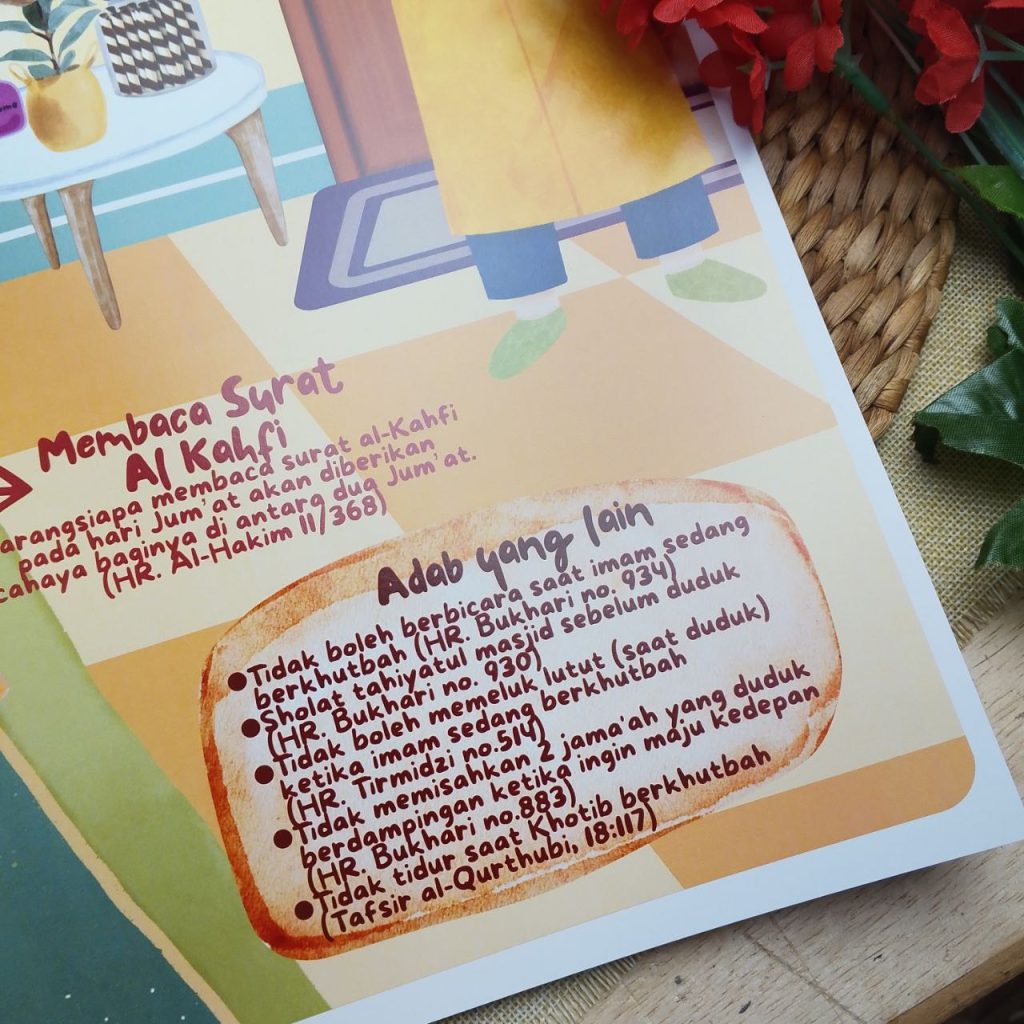 Membaca Surat
Al Kahfi
arangsiapa membaca surat al-Kahfi
pada hari Jum'at akan diberikan
cahaya baginya di antara dua Jum'at.
(HR. Al-Hakim II/368)
Adab yang lain
●Tidak boleh berbicara saat imam sedang
berkhutbah (HR. Bukhari no. 934)
●Sholat tahiyatul masjid sebelum duduk
(HR. Bukhari no. 930)
●Tidak boleh memeluk lutut (saat duduk)
ketika imam sedang berkhutbah
(HR. Tirmidzi no.514)
●Tidak memisahkan 2 jama'ah yang duduk
berdampingan ketika ingin maju kedepan
(HR. Bukhari no.883)
●Tidak tidur saat Khotib berkhutbah
(Tafsir al-Qurthubi, 18:117)